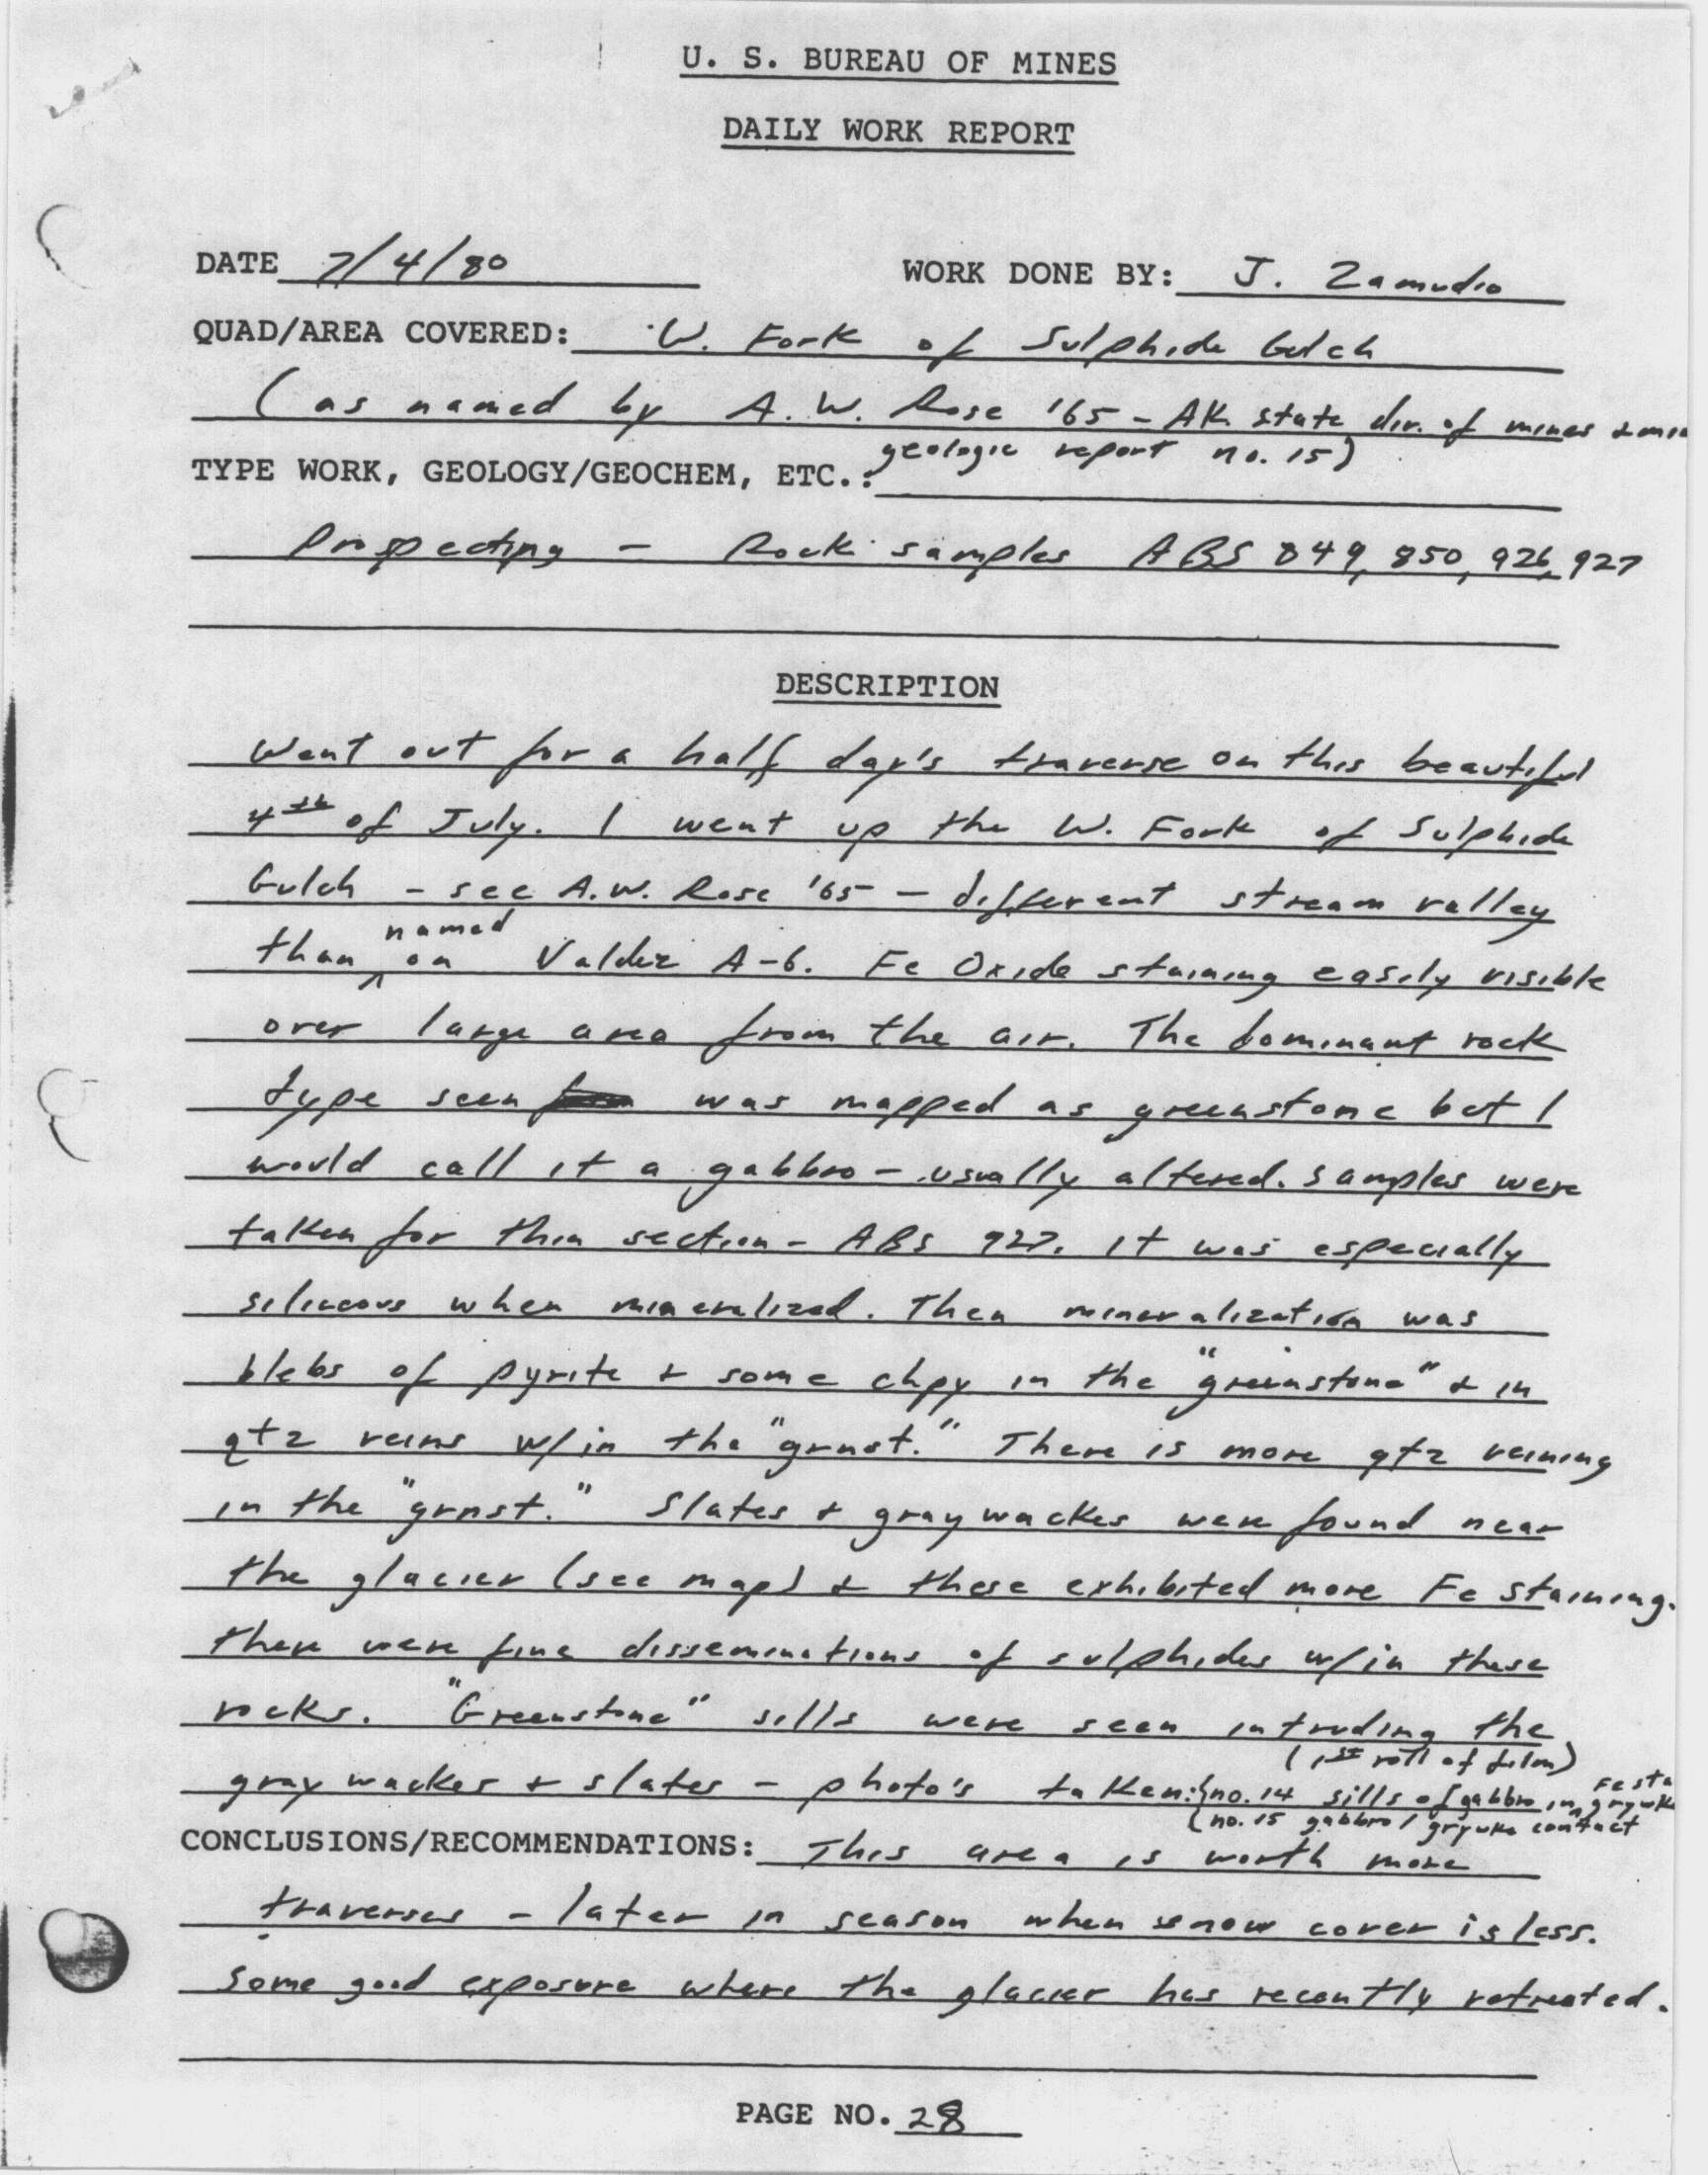 U. S. BUREAU OF MINES
DAILY WORK REPORT
DATE 7/4/80 WORK DONE BY: J. Zamudio
QUAD/AREA COVERED: W. Fork of Sulphide Gulch
(as named by A. W. Rose '65 - AK state div. of mines & min
geologic report no. 15)
TYPE WORK, GEOLOGY/GEOCHEM, ETC.:
Prospecting - Rock samples ABS 849, 850, 926, 927
DESCRIPTION
Went out for a half day's traverse on this beautiful
4th of July. I went up the W. Fork of Sulphide
Gulch - see A.W. Rose '65 - different stream valley
than named on Valdez A-6. Fe Oxide staining easily visible
over large area from the air. The dominant rock
type seen was mapped as greenstone but I
would call it a gabbro - usually altered. Samples were
taken for thin section - ABS 927. It was especially
siliceous when mineralized. Then mineralization was
blebs of pyrite & some chpy in the "greenstone" & in
qtz veins w/in the "grnst." There is more qtz veining
in the "grnst." Slates & graywackes were found near
the glacier (see map) & these exhibited more Fe staining.
There were fine disseminations of sulphides w/in these
rocks. "Greenstone" sills were seen intruding the
(1st roll of film)
graywackes & slates - photo's taken: {no. 14 sills of gabbro in Fe sta grywk
{no. 15 gabbro / grywke contact
CONCLUSIONS/RECOMMENDATIONS: This area is worth more
traverses - later in season when snow cover is less.
Some good exposure where the glacier has recently retreated.
PAGE NO. 28